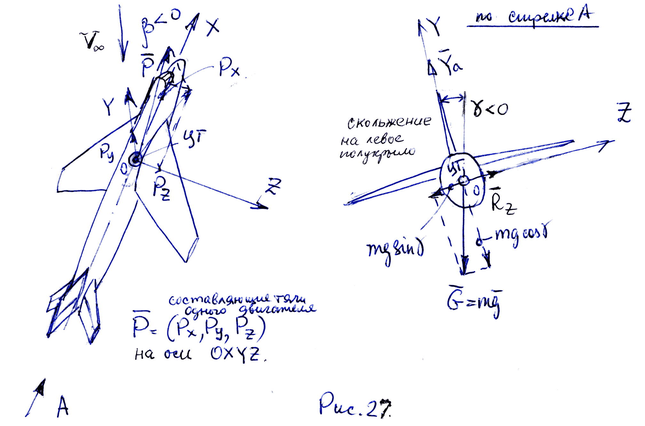 V̄∞
β<0
X
P̄
Px
Y
ЦТ
Py
O
Pz
Z
составляющие тяги
одного двигателя
P̄=(Px,Py,Pz)
на оси OXYZ.
A
по стрелке A
Y
Ȳa
γ<0
скольжение
на левое
полукрыло
Z
ЦТ
O
R̄z
mg sinγ
mg cosγ
Ḡ=mḡ
Рис.27.